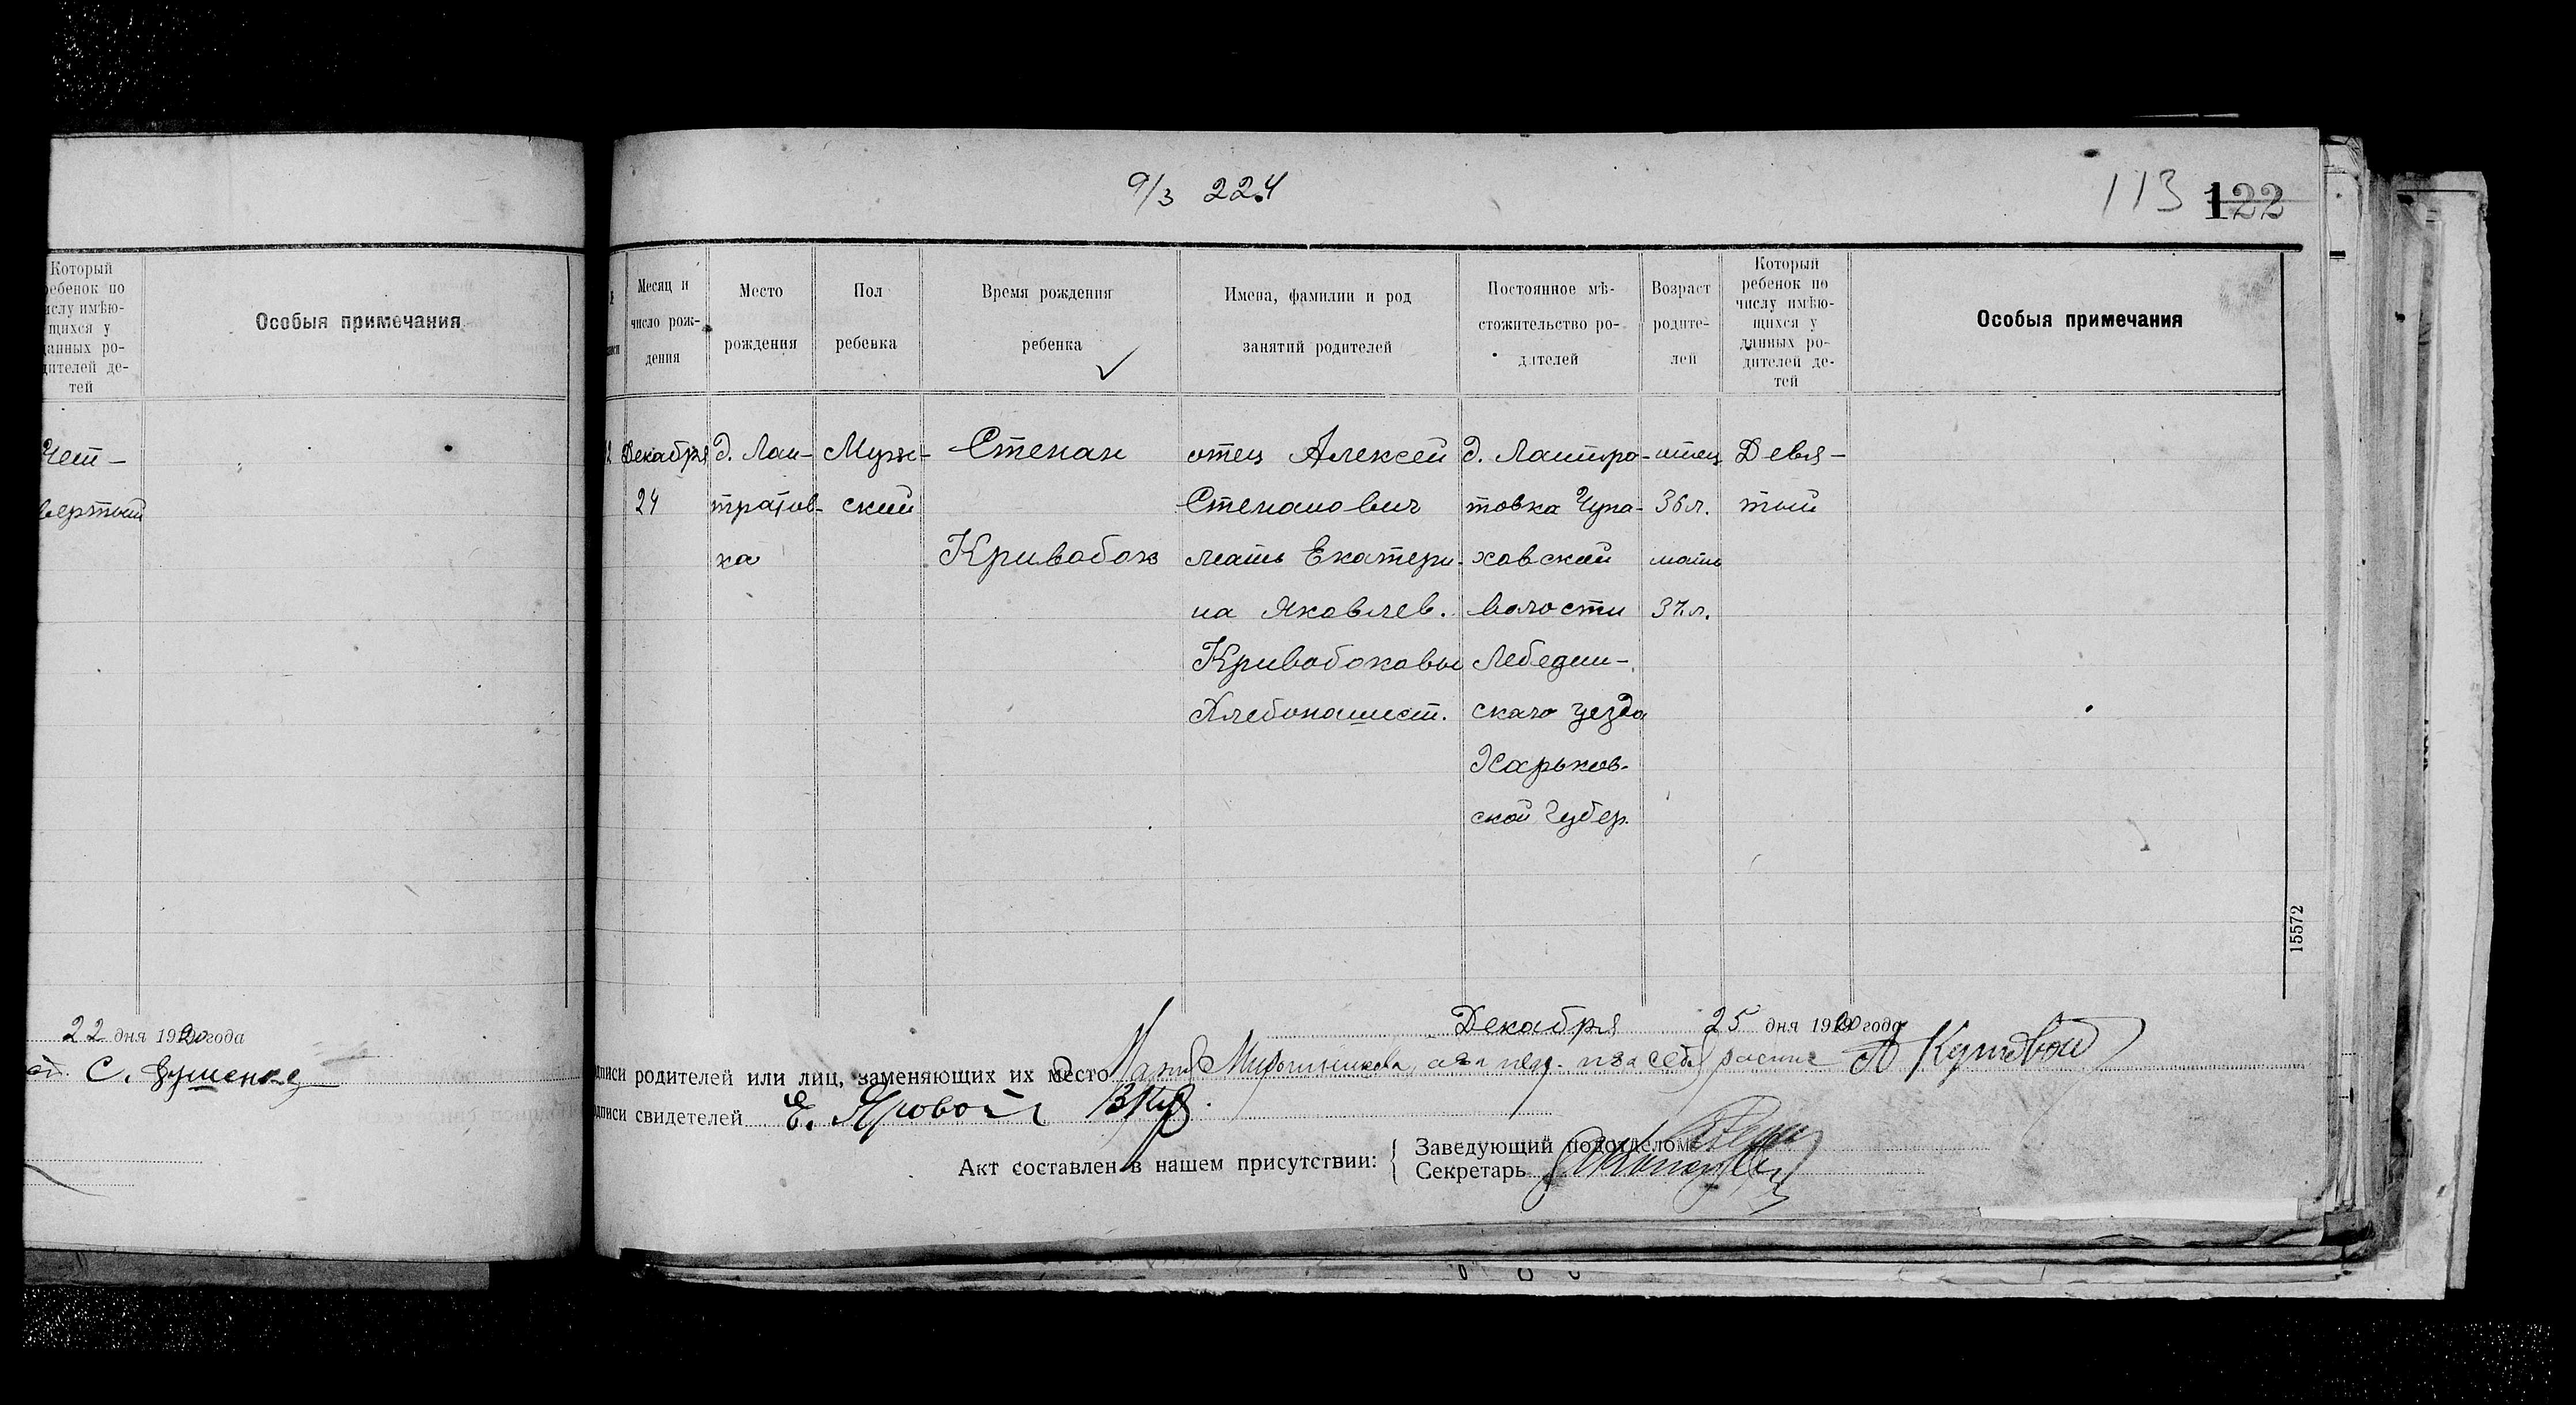 9/3 224
113 122
Который
ребенок по
числу имѣю-
щихся у
данных ро-
дителей де-
тей
Особыя примечания
Чет-
вертый
22 дня 1920 года
С.
Месяц и
число рож-
дения
Место
рождения
Пол
ребенка
Время рождения
ребенка
Имена, фамилии и род
занятий родителей
Постоянное мѣ-
стожительство ро-
дителей
Возраст
родите-
лей
Который
ребенок по
числу имѣю-
щихся у
данных ро-
дителей де-
тей
Особыя примечания
Декабря
24
д. Лан-
тратов-
ка
Муж-
ский
Степан
Кривобок
отец Алексей
Степанович
мать Екатери-
на Яковлев.
Кривобоковы
Хлебопашест.
д. Лантра-
товка Чупа-
ховской
волости
Лебедин-
скаго уезда
Харьков-
ской Губер.
отец
36 л.
мать
37 л.
Девя-
тый
15572
Декабря 25 дня 1920 года
подписи родителей или лиц, заменяющих их место
подписи свидетелей Е. Яровой
Акт составлен в нашем присутствии:
Заведующий подотделом
Секретарь